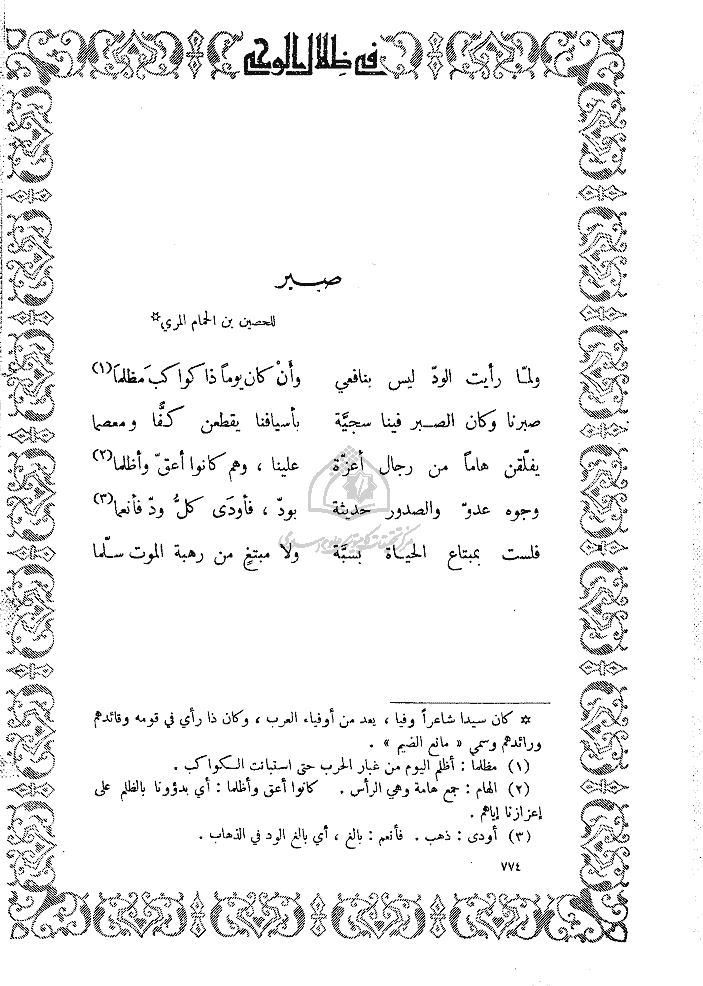 في ظلال الوحي
صبر
للحصين بن الحمام المري*
ولمّا رأيت الودّ ليس بنافعي وأنْ كان يوماً ذا كواكبَ مظلما(١)
صبرنا وكان الصبر فينا سجيَّة بأسيافنا يقطعن كفًّا ومعصما
يفلّقن هاماً من رجال أعزّة علينا ، وهم كانوا أعقّ وأظلما(٢)
وجوه عدوّ والصدور حديثة بودّ ، فأودَى كلُّ ودّ فأنعما(٣)
فلست بمبتاع الحياة بسبَّة ولا مبتغٍ من رهبة الموت سلّما
* كان سيدا شاعراً وفيا ، يعد من أوفياء العرب ، وكان ذا رأي في قومه وقائدهم
ورائدهم وسمي « مانع الضيم » .
(١) مظلما : أظلم اليوم من غبار الحرب حتى استبانت الكواكب .
(٢) الهام : جمع هامة وهي الرأس . كانوا أعق وأظلما : أي بدؤونا بالظلم على
إعزازنا إياهم .
(٣) أودى : ذهب . فأنعم : بالغ ، أي بالغ الود في الذهاب .
٧٧٤